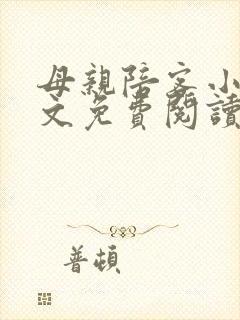 母親陪客小
文免費閱讀
普頓